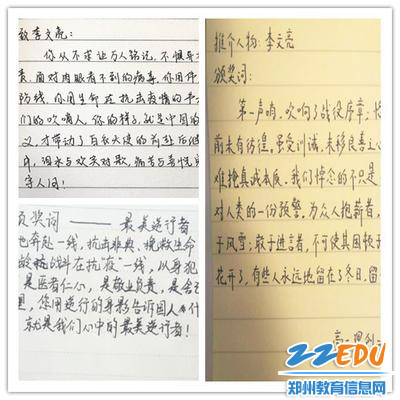 致李文亮:
你从不求让万人铭记,不惧
责,面对肉眼看不到的病毒,你用
防线,你用生命在抗击疫情的
们的吹哨人,你的样子,就是中国的
义,才带动了白衣天使的前赴后继
泪水与欢笑对歌,痛苦与喜悦
守人间!
颁奖词——最美逆行者
也奔赴一线,抗击非典,挽救生命
战斗在抗"疫"一线,以身犯
是医者仁心,是敬业负责,是舍
里,您用逆行的身影告诉国人
就是我们心中的最美逆行者!
推介人物:李文亮
颁奖词:
第一声响,吹响了战役序章;
前未有彷徨,虽受训诫,未移良善之心
难掩真诚本底。我们悼念的不只是
对人类的一份预警,为众人抱薪者,
于风雪;敢于进言者,不可使其困顿于
花开了,有些人永远地留在了冬日,留
高一
22EDU
郑州教育信息网